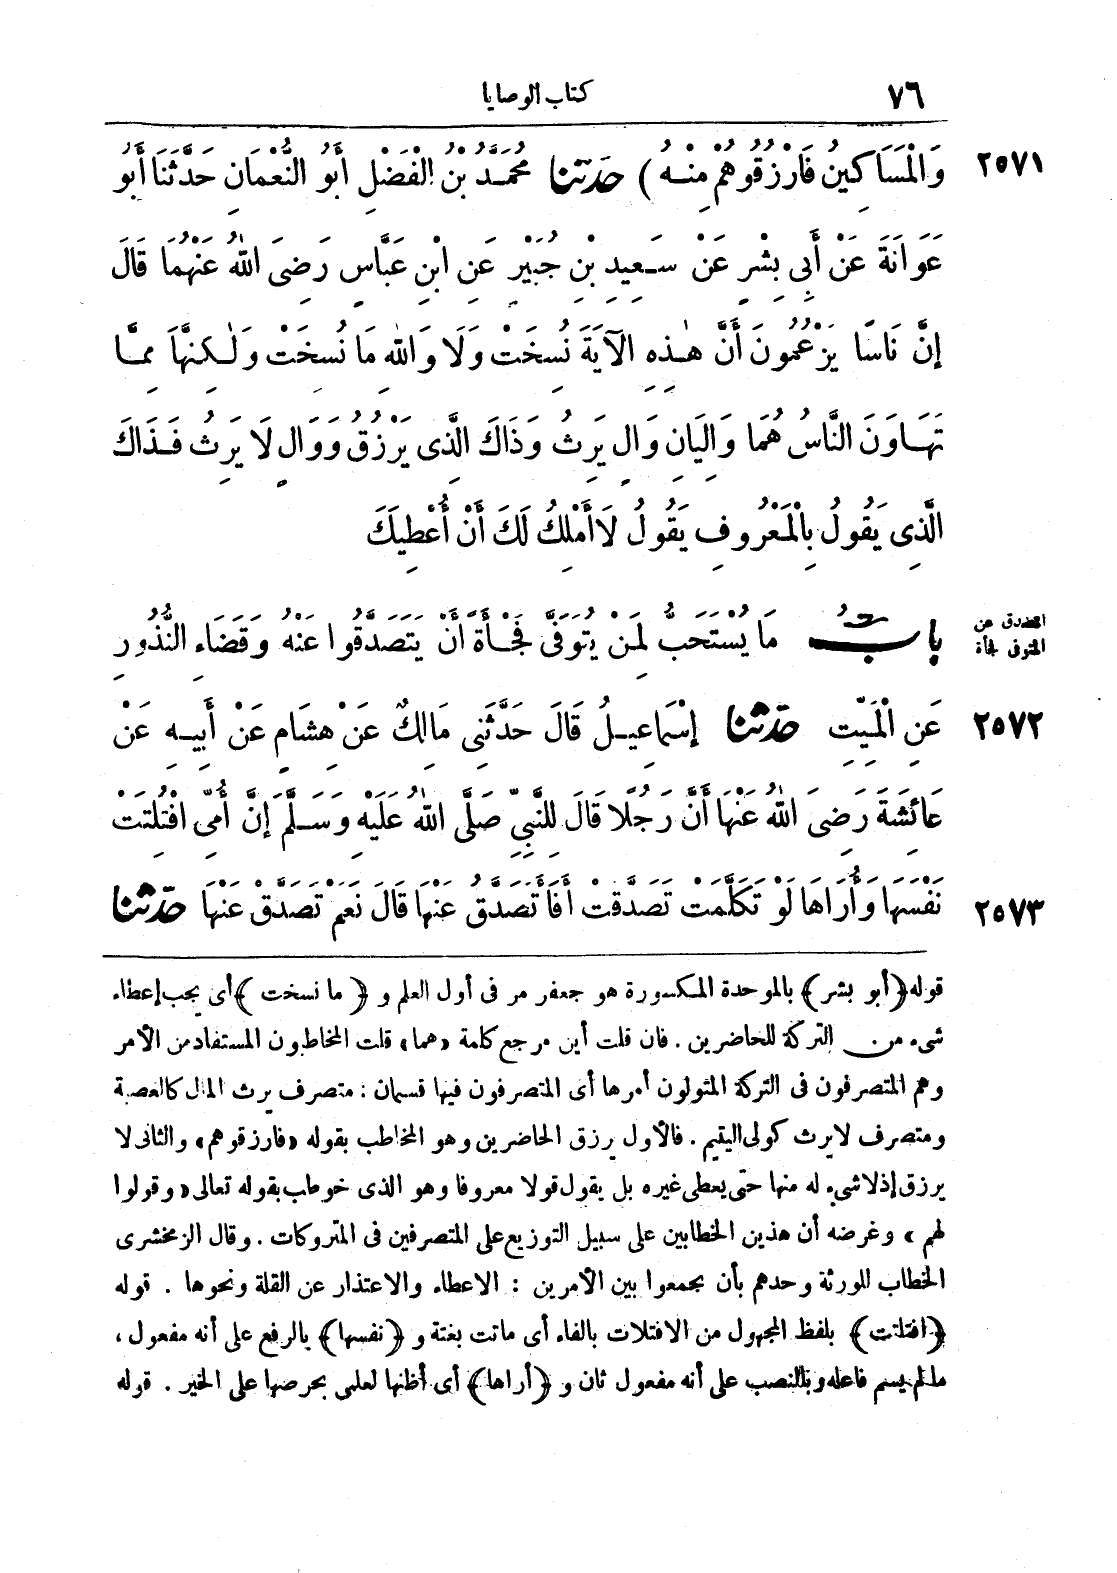 ٧٦ كتاب الوصايا
٢٥٧١ وَالْمَسَاكِينُ فَارْزُقُوهُمْ مِنْهُ ) حَدَّثَنَا مُحَمَّدُ بْنُ الْفَضْلِ أَبُو النُّعْمَانِ حَدَّثَنَا أَبُو
عَوَانَةَ عَنْ أَبِي بِشْرٍ عَنْ سَعِيدِ بْنِ جُبَيْرٍ عَنِ ابْنِ عَبَّاسٍ رَضِيَ اللهُ عَنْهُمَا قَالَ
إِنَّ نَاسًا يَزْعُمُونَ أَنَّ هٰذِهِ الآيَةَ نُسِخَتْ وَلَا وَاللهِ مَا نُسِخَتْ وَلٰكِنَّهَا مِمَّا
تَهَاوَنَ النَّاسُ هُمَا وَالِيَانِ وَالٍ يَرِثُ وَذَاكَ الَّذِى يَرْزُقُ وَوَالٍ لَا يَرِثُ فَذَاكَ
الَّذِى يَقُولُ بِالْمَعْرُوفِ يَقُولُ لَا أَمْلِكُ لَكَ أَنْ أُعْطِيَكَ
بَابُ مَا يُسْتَحَبُّ لِمَنْ يُتَوَفَّى فَجْأَةً أَنْ يَتَصَدَّقُوا عَنْهُ وَقَضَاءِ النُّذُورِ
التصدق عن
المتوفى فجأة
٢٥٧٢ عَنِ الْمَيِّتِ حَدَّثَنَا إِسْمَاعِيلُ قَالَ حَدَّثَنِى مَالِكٌ عَنْ هِشَامٍ عَنْ أَبِيهِ عَنْ
عَائِشَةَ رَضِىَ اللهُ عَنْهَا أَنَّ رَجُلًا قَالَ لِلنَّبِيِّ صَلَّى اللهُ عَلَيْهِ وَسَلَّمَ إِنَّ أُمِّى افْتُلِتَتْ
٢٥٧٣ نَفْسَهَا وَأُرَاهَا لَوْ تَكَلَّمَتْ تَصَدَّقَتْ أَفَأَتَصَدَّقُ عَنْهَا قَالَ نَعَمْ تَصَدَّقْ عَنْهَا حَدَّثَنَا
قوله ﴿أبو بشر﴾ بالموحدة المكسورة هو جعفر مر فى أول العلم و ﴿ما نسخت﴾ أى يجب إعطاء
شىء من التركة للحاضرين . فان قلت أين مرجع كلمة «هما» قلت المخاطبون المستفاد من الأمر
وهم المتصرفون فى التركة المتولون أمرها أى المتصرفون فيها قسمان : متصرف يرث المال كالعصبة
ومتصرف لا يرث كولى اليتيم . فالأول يرزق الحاضرين وهو المخاطب بقوله «فارزقوهم» والثانى لا
يرزق إذ لا شىء له منها حتى يعطى غيره بل يقول قولا معروفا وهو الذى خوطب بقوله تعالى «وقولوا
لهم» وغرضه أن هذين الخطابين على سبيل التوزيع على المتصرفين فى المتروكات . وقال الزمخشرى
الخطاب للورثة وحدهم بأن يجمعوا بين الأمرين : الاعطاء والاعتذار عن القلة ونحوها . قوله
﴿افتلتت﴾ بلفظ المجهول من الافتلات بالفاء أى ماتت بغتة و ﴿نفسها﴾ بالرفع على أنه مفعول ،
ما لم يسم فاعله وبالنصب على أنه مفعول ثان و ﴿أراها﴾ أى أظنها لعلمى بحرصها على الخير . قوله